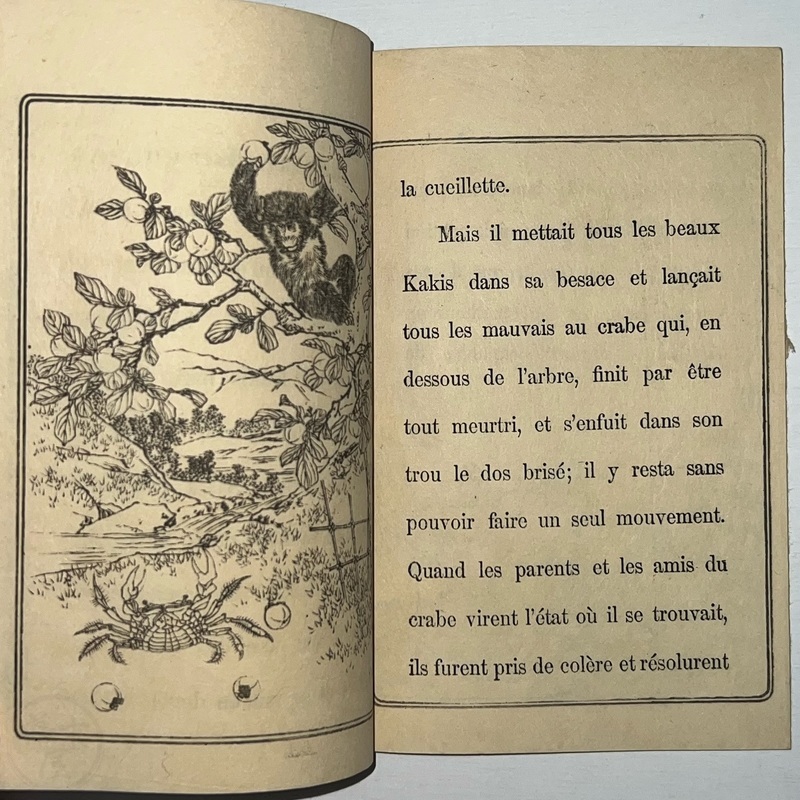 la cueillette.
Mais il mettait tous les beaux
Kakis dans sa besace et lançait
tous les mauvais au crabe qui, en
dessous de l'arbre, finit par être
tout meurtri, et s'enfuit dans son
trou le dos brisé; il y resta sans
pouvoir faire un seul mouvement.
Quand les parents et les amis du
crabe virent l'état où il se trouvait,
ils furent pris de colère et résolurent